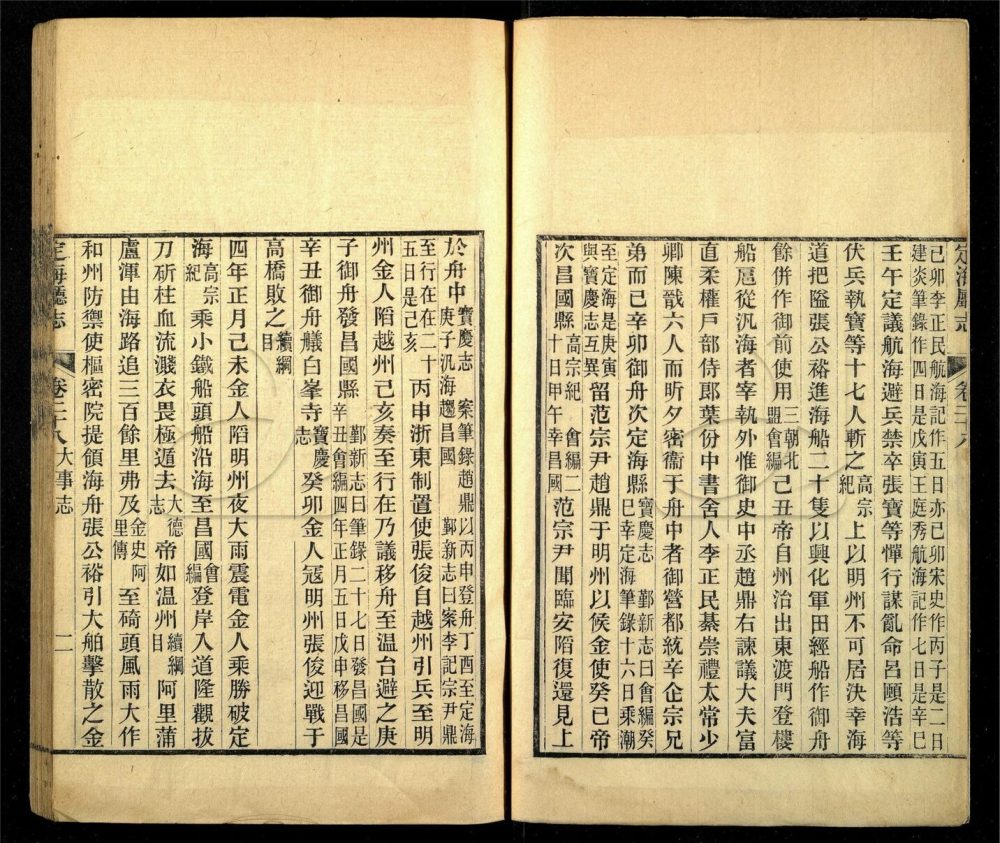 定海廳志
卷二十八
己卯李正民航海記作五日亦己卯宋史作丙子是二日
建炎筆錄作四日是戊寅王庭秀航海記作七日是辛巳
壬午定議航海避兵禁卒張寶等憚行謀亂命呂頤浩等
伏兵執寶等十七人斬之高宗紀上以明州不可居決幸海
道把隘張公裕進海船二十隻以興化軍田經船作御舟
餘併作御前使用三朝北盟會編己丑帝自州治出東渡門登樓
船扈從汎海者宰執外惟御史中丞趙鼎右諫議大夫富
直柔權戶部侍郎葉份中書舍人李正民綦崇禮太常少
卿陳戩六人而昕夕密衞于舟中者御營都統辛企宗兄
弟而已辛卯御舟次定海縣寶慶志 鄞新志曰會編癸巳幸定海筆錄十六日乘潮
至定海是庚寅與寶慶志互異留范宗尹趙鼎于明州以俟金使癸巳帝
次昌國縣高宗紀 會編二十日甲午幸昌國范宗尹聞臨安陷復還見上
於舟中寶慶志 案筆錄趙鼎以丙申登舟丁酉至定海庚子汎海趨昌國 鄞新志曰案李記宗尹鼎
至行在在二十五日是己亥丙申浙東制置使張俊自越州引兵至明
州金人陷越州己亥奏至行在乃議移舟至温台避之庚
子御舟發昌國縣鄞新志曰筆錄二十七日發昌國是辛丑會編四年正月五日戊申移昌國
辛丑御舟艤白峯寺寶慶志癸卯金人寇明州張俊迎戰于
高橋敗之續綱目
四年正月己未金人陷明州夜大雨震電金人乘勝破定
海高宗紀乘小鐵船頭船沿海至昌國會編登岸入道隆觀拔
刀斫柱血流濺衣畏極遁去大德志帝如温州續綱目阿里蒲
盧渾由海路追三百餘里弗及金史阿里傳至碕頭風雨大作
和州防禦使樞密院提領海舟張公裕引大舶擊散之金
定海廳志
卷二十八大事志
二